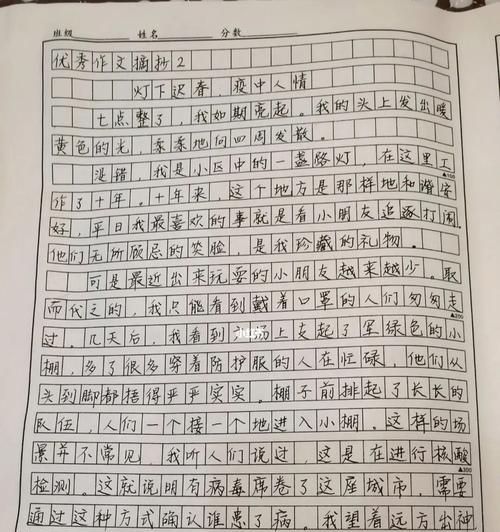 班级 姓名 分数
优秀作文摘抄2
灯下迟春,疫中人情
七点整了,我如期亮起。我的头上发出暖
黄色的光,柔柔地向四周发散。
没错,我是小区中的一盏路灯,在这里工
▲100
作了十年。十年来,这个地方是那样地和谐安
好,平日我最喜欢的事就是看小朋友追逐打闹。
他们无所顾忌的笑脸,是我珍藏的礼物。
可是最近出来玩耍的小朋友越来越少。取
而代之的,我只能看到戴着口罩的人们匆匆走
▲200
过。几天后,我看到广场上支起了军绿色的小
棚,多了很多穿着防护服的人在忙碌,他们从
头到脚都捂得严严实实。棚子前排起了长长的
队伍,人们一个接一个地进入小棚。这样的场
景并不常见,我听人们说过,这是在进行核酸
▲300
检测。这就说明有病毒席卷了这座城市,需要
通过这种方式确认谁患了病。我望着远方出神